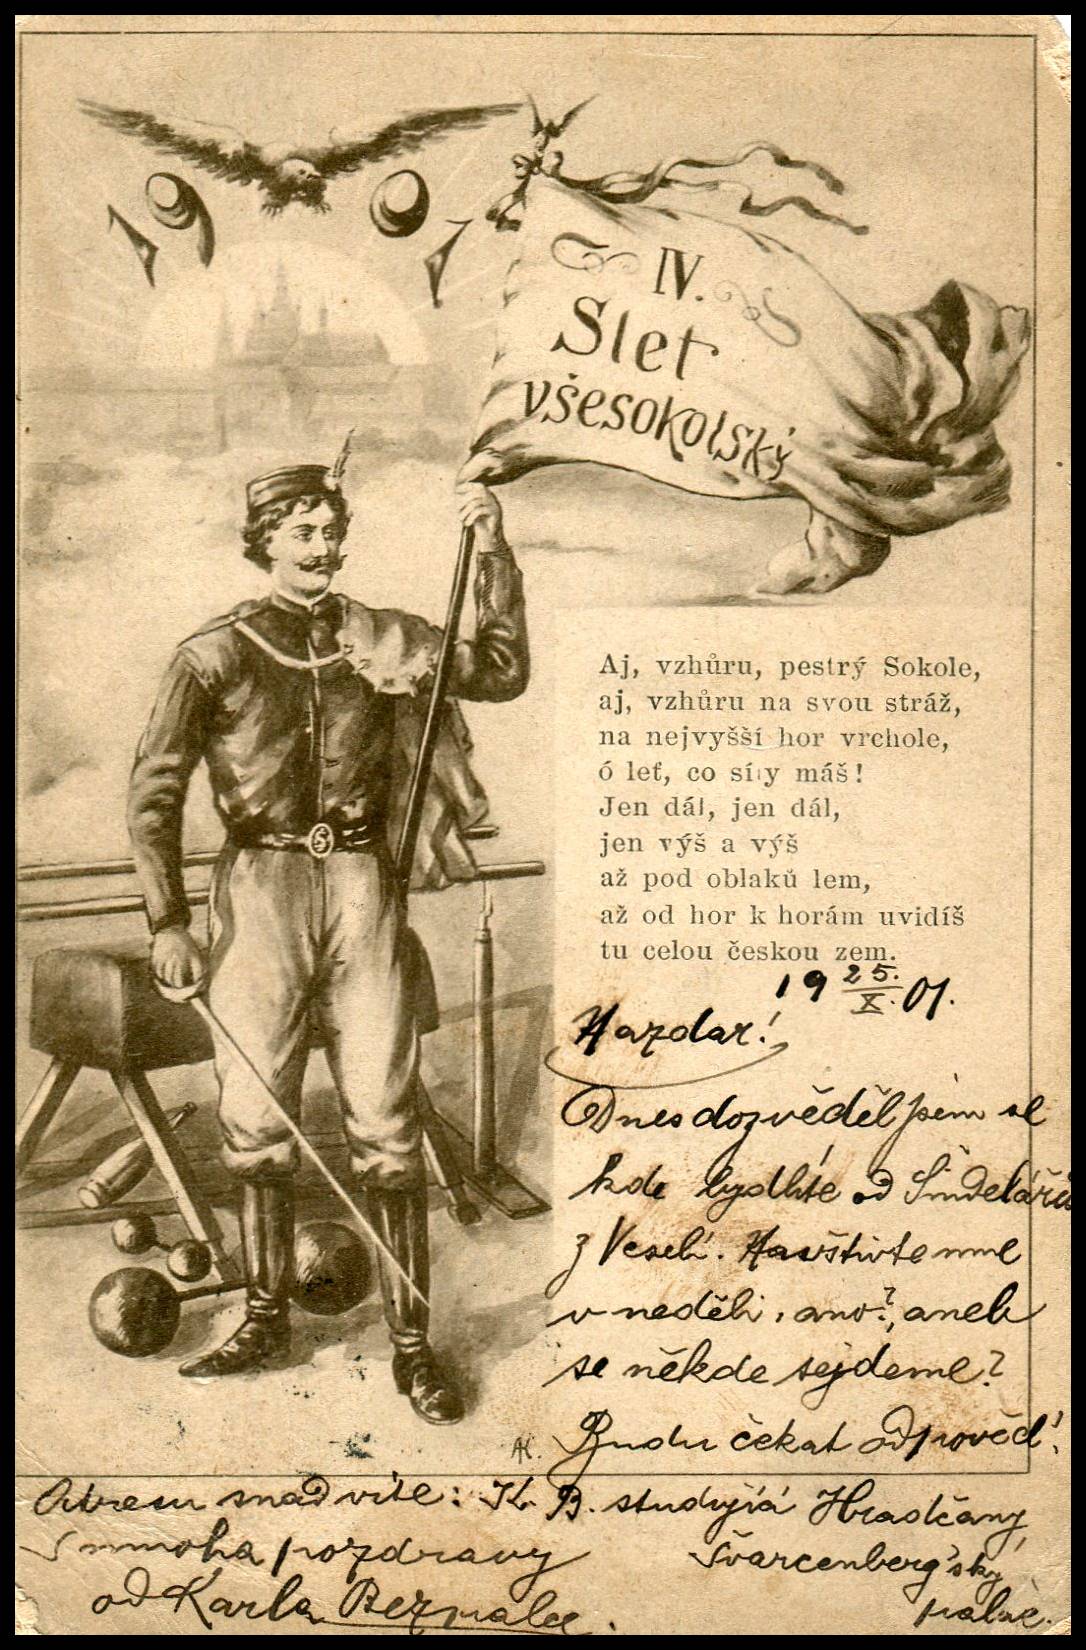 1901
IV.
Slet
všesokolský
Aj, vzhůru, pestrý Sokole,
aj, vzhůru na svou stráž,
na nejvyšší hor vrchole,
ó leť, co síly máš!
Jen dál, jen dál,
jen výš a výš
až pod oblaků lem,
až od hor k horám uvidíš
tu celou českou zem.
19 25./X. 01.
Nazdar!
Dnes dozvěděl jsem se
kde bydlíte od Šindeláře
z Veselí. Navštivte mne
v neděli, ano?, aneb
se někde sejdeme?
Budu čekat odpověď.
AK.
Adresu snad víte: K. B. studující Hradčany,
S mnoha pozdravy Švarcenberg'ský
od Karla palác.